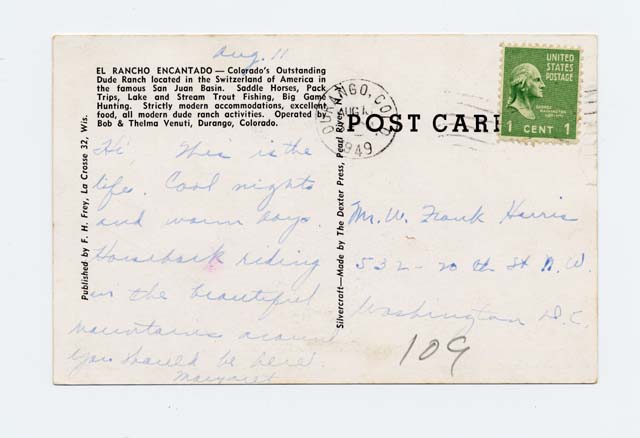 Aug. 11
EL RANCHO ENCANTADO — Colorado's Outstanding
Dude Ranch located in the Switzerland of America in
the famous San Juan Basin. Saddle Horses, Pack
Trips, Lake and Stream Trout Fishing, Big Game
Hunting. Strictly modern accommodations, excellent
food, all modern dude ranch activities. Operated by
Bob & Thelma Venuti, Durango, Colorado.
Hi, This is the
life. Cool nights
and warm days.
Horseback riding
in the beautiful
mountains around
You should be here!
Margaret
Published by F. H. Frey, La Crosse 32, Wis.
Silvercraft—Made by The Dexter Press, Pearl River, N.
DURANGO, COLO
AUG
1949
POST CAR
UNITED
STATES
POSTAGE
GEORGE
WASHINGTON
1 CENT 1
Mr. W. Frank Harris
532 - 20 th St N.W.
Washington D.C.
109